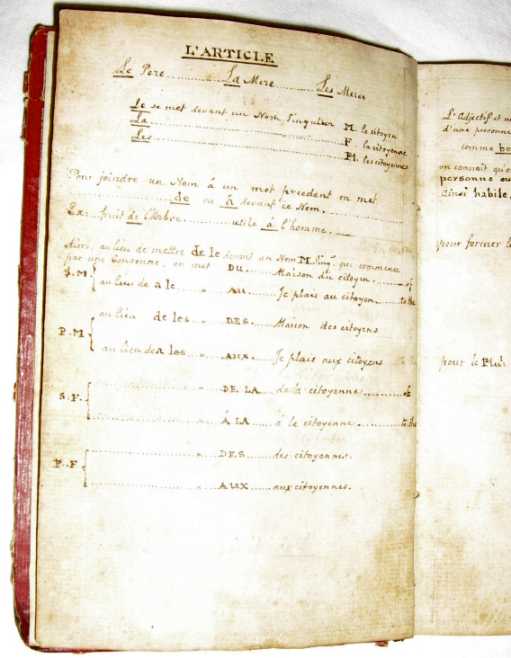 L'ARTICLE
Le Pere ............ La Mere ........ Les Meres
Le se met devant un Nom singulier M. le citoyen
La ........ F. la citoyenne
Les ........ Pl. les citoyennes
Pour joindre un Nom à un mot précédent on met
........ de ou à devant ce Nom.
Ex: fruit de l'Arbre ........ utile à l'homme
Ainsi au lieu de mettre de le devant un Nom M. Sing. qui commence
par une Consonne, on met DU ...... Maison du citoyen ...... of
S.M. au lieu de à le ...... AU ...... Je plais au citoyen ...... to the
au lieu de les ...... DES ...... Maison des citoyens
P.M.
au lieu de à les ...... AUX ...... Je plais aux citoyens
S.F. ........ DE LA ...... de la citoyenne ........ of
........ À LA ...... à la citoyenne ...... to the
P.F ........ DES ...... des citoyennes.
........ AUX ...... aux citoyennes.
L'adjectif
d'une personne
comme
on connait qu'
personne
ainsi habile,
pour former l
pour le Plur